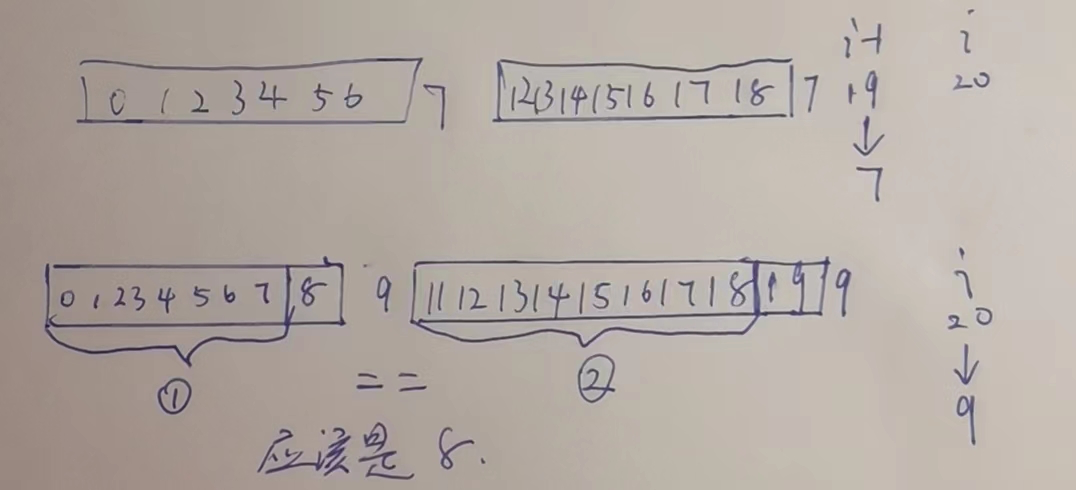 i-1 i
0 1 2 3 4 5 6 7 12 13 14 15 16 17 18 7 19 20
↓
7
i
0 1 2 3 4 5 6 7 8 9 11 12 13 14 15 16 17 18 19 9
20
↓
① == ② 9
应该是 8.